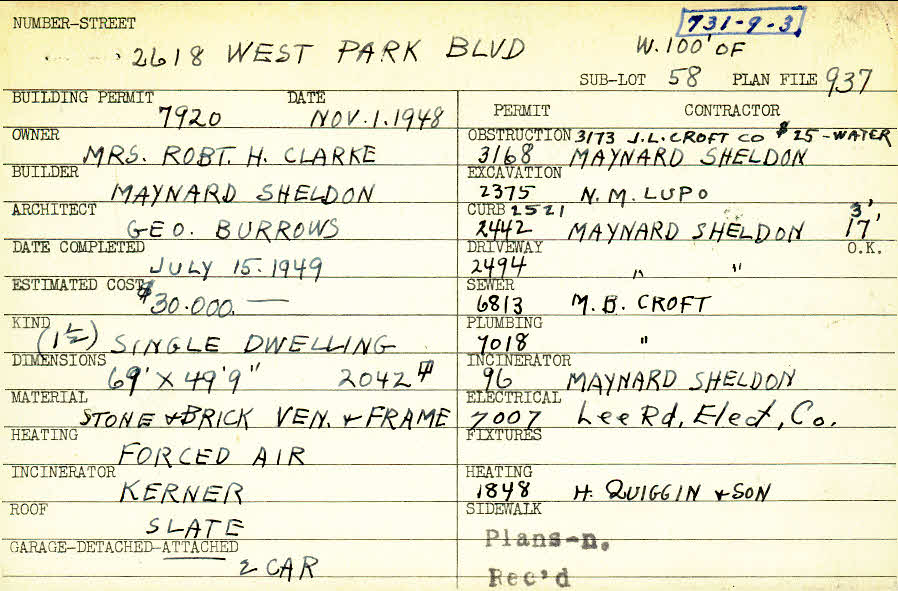 NUMBER-STREET
731-9-3
2618 WEST PARK BLVD
W. 100' OF
SUB-LOT 58 PLAN FILE 937
BUILDING PERMIT DATE
7920 NOV. 1. 1948
OWNER
MRS. ROBT. H. CLARKE
BUILDER
MAYNARD SHELDON
ARCHITECT
GEO. BURROWS
DATE COMPLETED
JULY 15. 1949
ESTIMATED COST
$30.000. —
KIND
(1½) SINGLE DWELLING
DIMENSIONS
69' X 49'9" 2042
MATERIAL
STONE & BRICK VEN. & FRAME
HEATING
FORCED AIR
INCINERATOR
KERNER
ROOF
SLATE
GARAGE-DETACHED-ATTACHED
2 CAR
PERMIT CONTRACTOR
OBSTRUCTION 3173 J.L. CROFT CO $25-WATER
3168 MAYNARD SHELDON
EXCAVATION
2375 N. M. LUPO
CURB 2521 3'
2442 MAYNARD SHELDON 17'
DRIVEWAY O.K.
2494 " "
SEWER
6813 M. B. CROFT
PLUMBING
7018 "
INCINERATOR
96 MAYNARD SHELDON
ELECTRICAL
7007 Lee Rd, Elect, Co.
FIXTURES
HEATING
1848 H. QUIGGIN & SON
SIDEWALK
Plans-n.
Rec'd